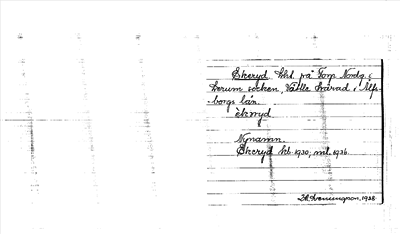 Ekeryd. hht. på Torp Nordg. i
Lerum socken, Vättle härad, Älfs-
borgs län.
ekeryd
Nynamn.
Ekeryd kb. 1930, ml. 1936.
1938